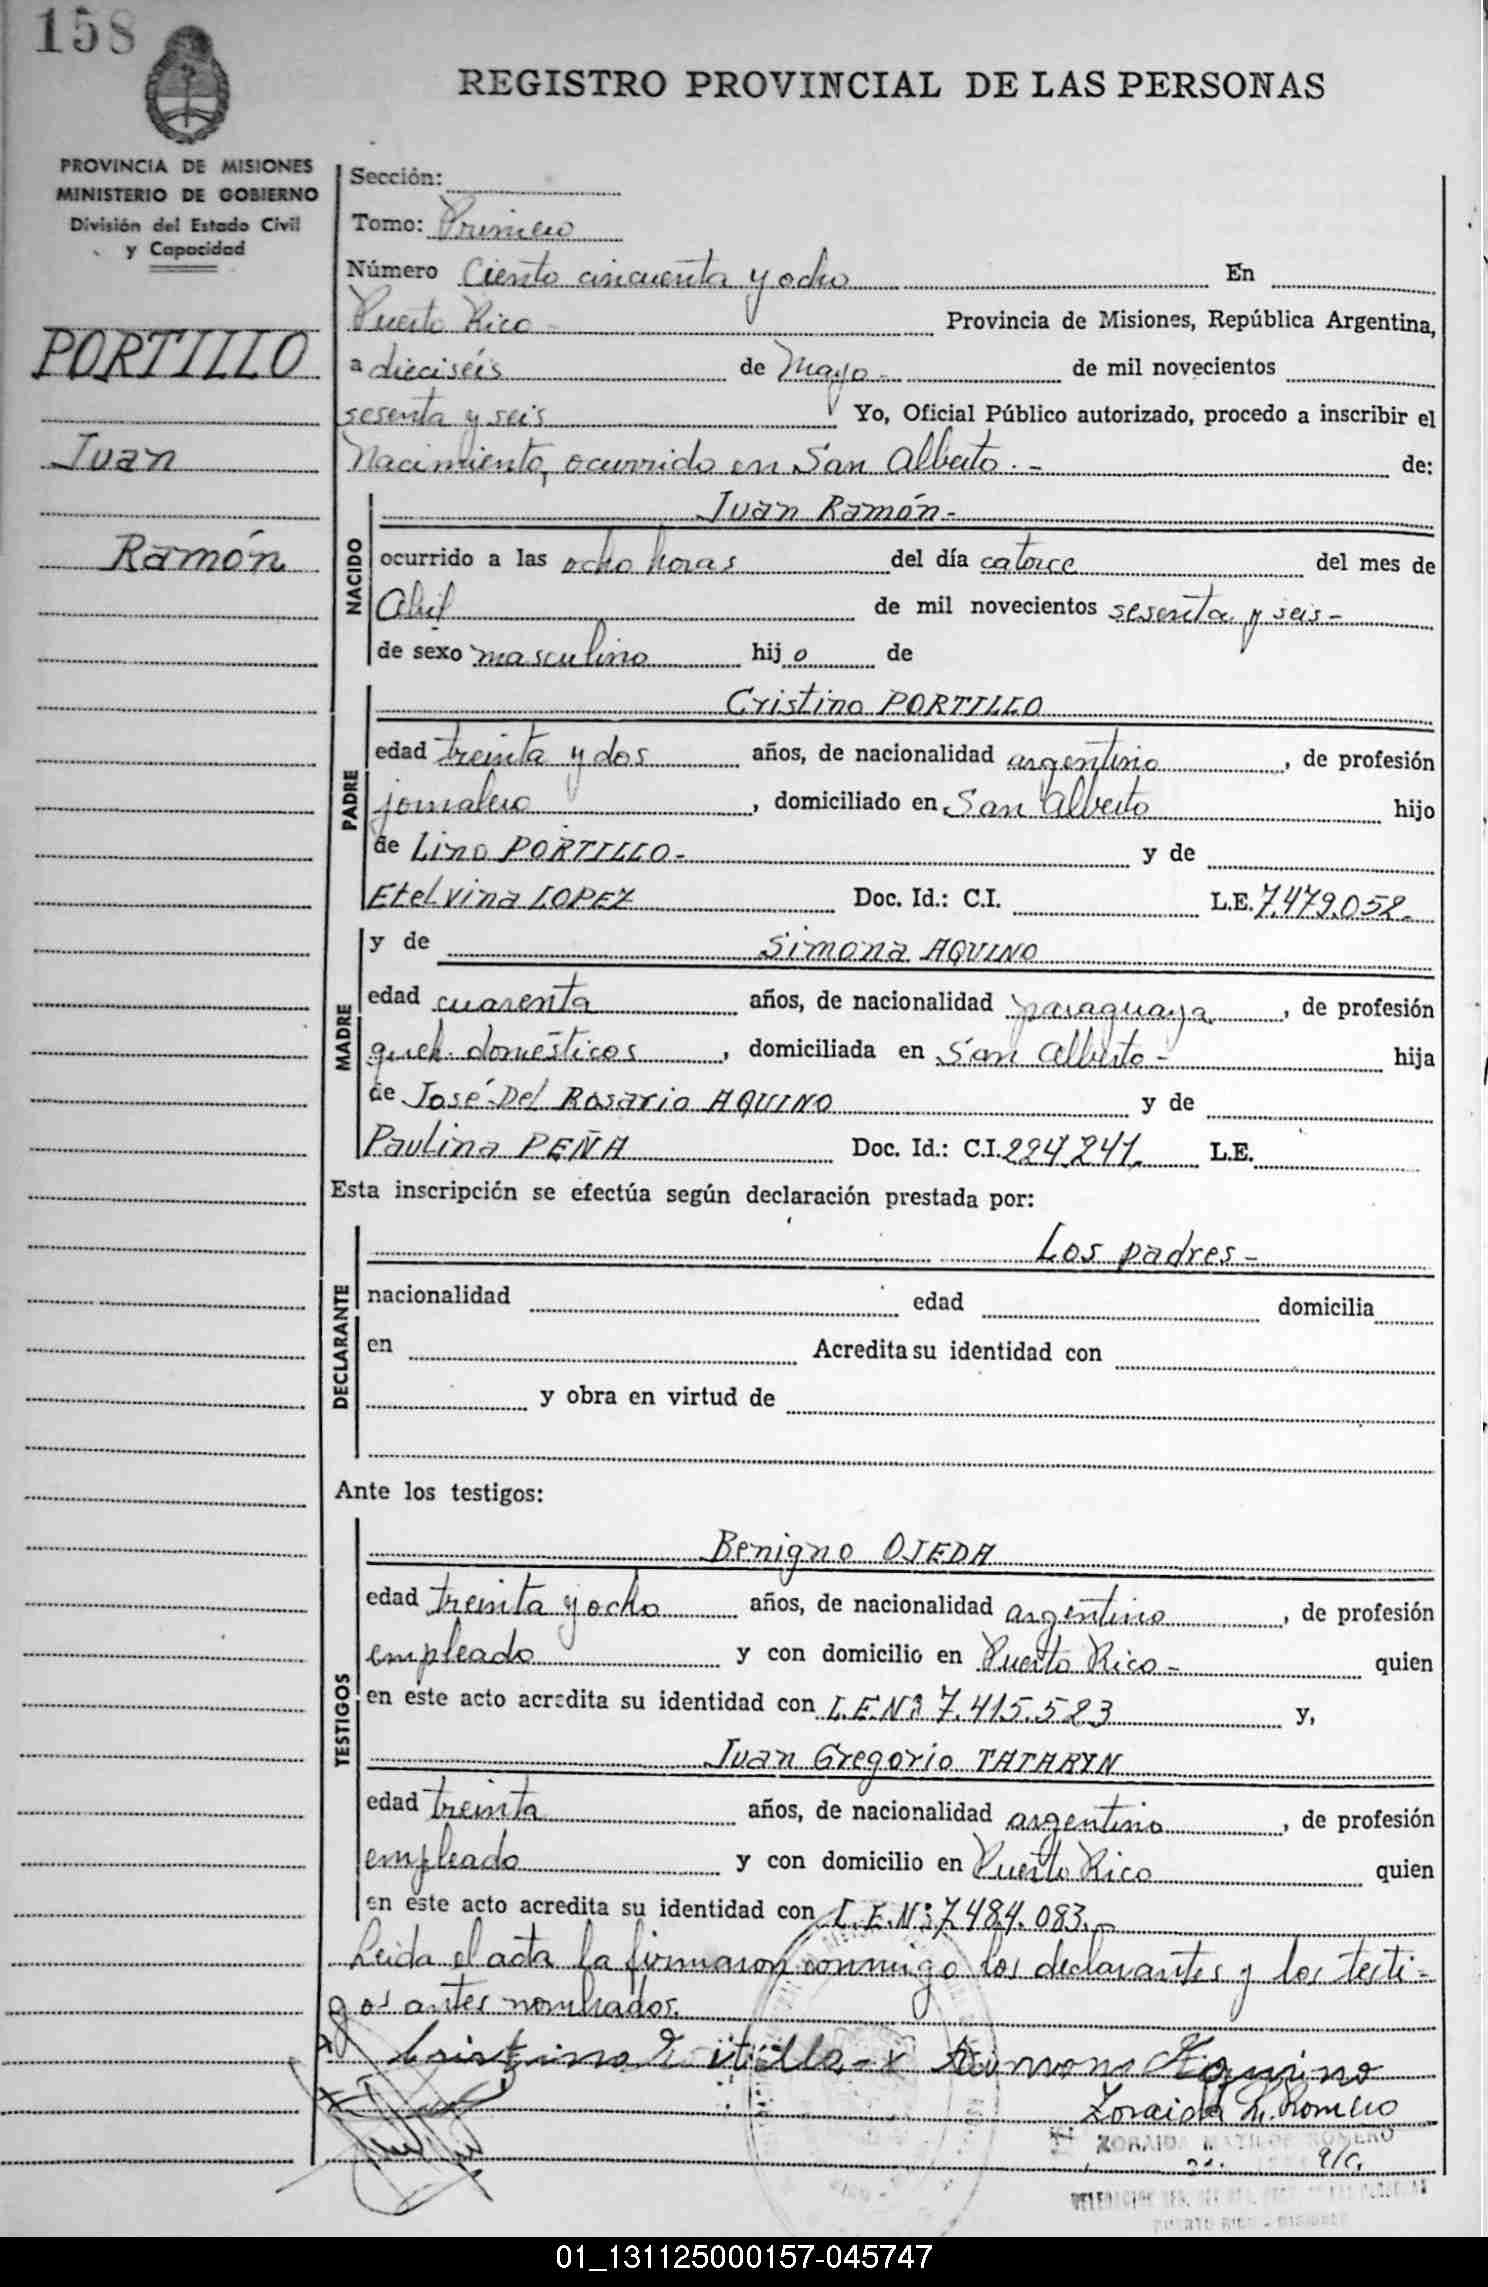 158
REGISTRO PROVINCIAL DE LAS PERSONAS
PROVINCIA DE MISIONES
MINISTERIO DE GOBIERNO
División del Estado Civil
y Capacidad
PORTILLO
Juan
Ramón
Sección:
Tomo: Primero
Número Ciento cincuenta y ocho En
Puerto Rico - Provincia de Misiones, República Argentina,
a dieciséis de Mayo - de mil novecientos
sesenta y seis Yo, Oficial Público autorizado, procedo a inscribir el
Nacimiento, ocurrido en San Alberto. - de:
NACIDO
Juan Ramón -
ocurrido a las ocho horas del día catorce del mes de
Abril de mil novecientos sesenta y seis -
de sexo masculino hijo de
PADRE
Cristino PORTILLO
edad treinta y dos años, de nacionalidad argentino, de profesión
jornalero, domiciliado en San Alberto hijo
de Lino PORTILLO - y de
Etelvina LOPEZ Doc. Id.: C.I. L.E. 7.479.052.
MADRE
y de Simona AQUINO
edad cuarenta años, de nacionalidad paraguaya, de profesión
queh. domésticos, domiciliada en San Alberto - hija
de José Del Rosario AQUINO y de
Paulina PEÑA Doc. Id.: C.I. 224.241. L.E.
Esta inscripción se efectúa según declaración prestada por:
DECLARANTE
Los padres -
nacionalidad edad domicilia
en Acredita su identidad con
y obra en virtud de
Ante los testigos:
TESTIGOS
Benigno OJEDA
edad treinta y ocho años, de nacionalidad argentino, de profesión
empleado y con domicilio en Puerto Rico - quien
en este acto acredita su identidad con L.E.Nº 7.415.523 y,
Juan Gregorio TATARYN
edad treinta años, de nacionalidad argentino, de profesión
empleado y con domicilio en Puerto Rico quien
en este acto acredita su identidad con L.E.Nº 7.484.083. -
Leida el acta la firmaron conmigo los declarantes y los testi-
gos antes nombrados.
x Cristino Portillo - x Simona Aquino
Zoraida M. Romero
ZORAIDA MATILDE ROMERO
a/c.
PUERTO RICO - MISIONES
01_131125000157-045747